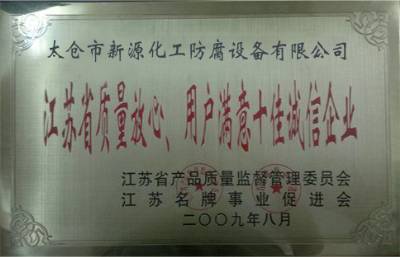 太仓市新源化工防腐设备有限公司
江苏省质量放心、用户满意十佳诚信企业
江苏省产品质量监督管理委员会
江苏名牌事业促进会
二〇〇九年八月